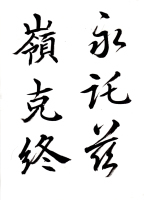 永託茲
嶺克終